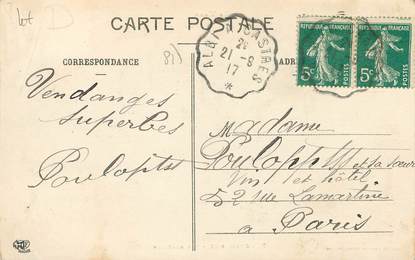 lot D
CARTE POSTALE
CORRESPONDANCE
ADR
81)
CASTRES
2e
21-9
17
RÉPUBLIQUE FRANÇAISE
5c
POSTES
RÉPUBLIQUE FRANÇAISE
5c
POSTES
Vendanges
superbes
Poulopts
Madame
et sa sœur
Vin et hôtel
52 rue Lamartine
a Paris